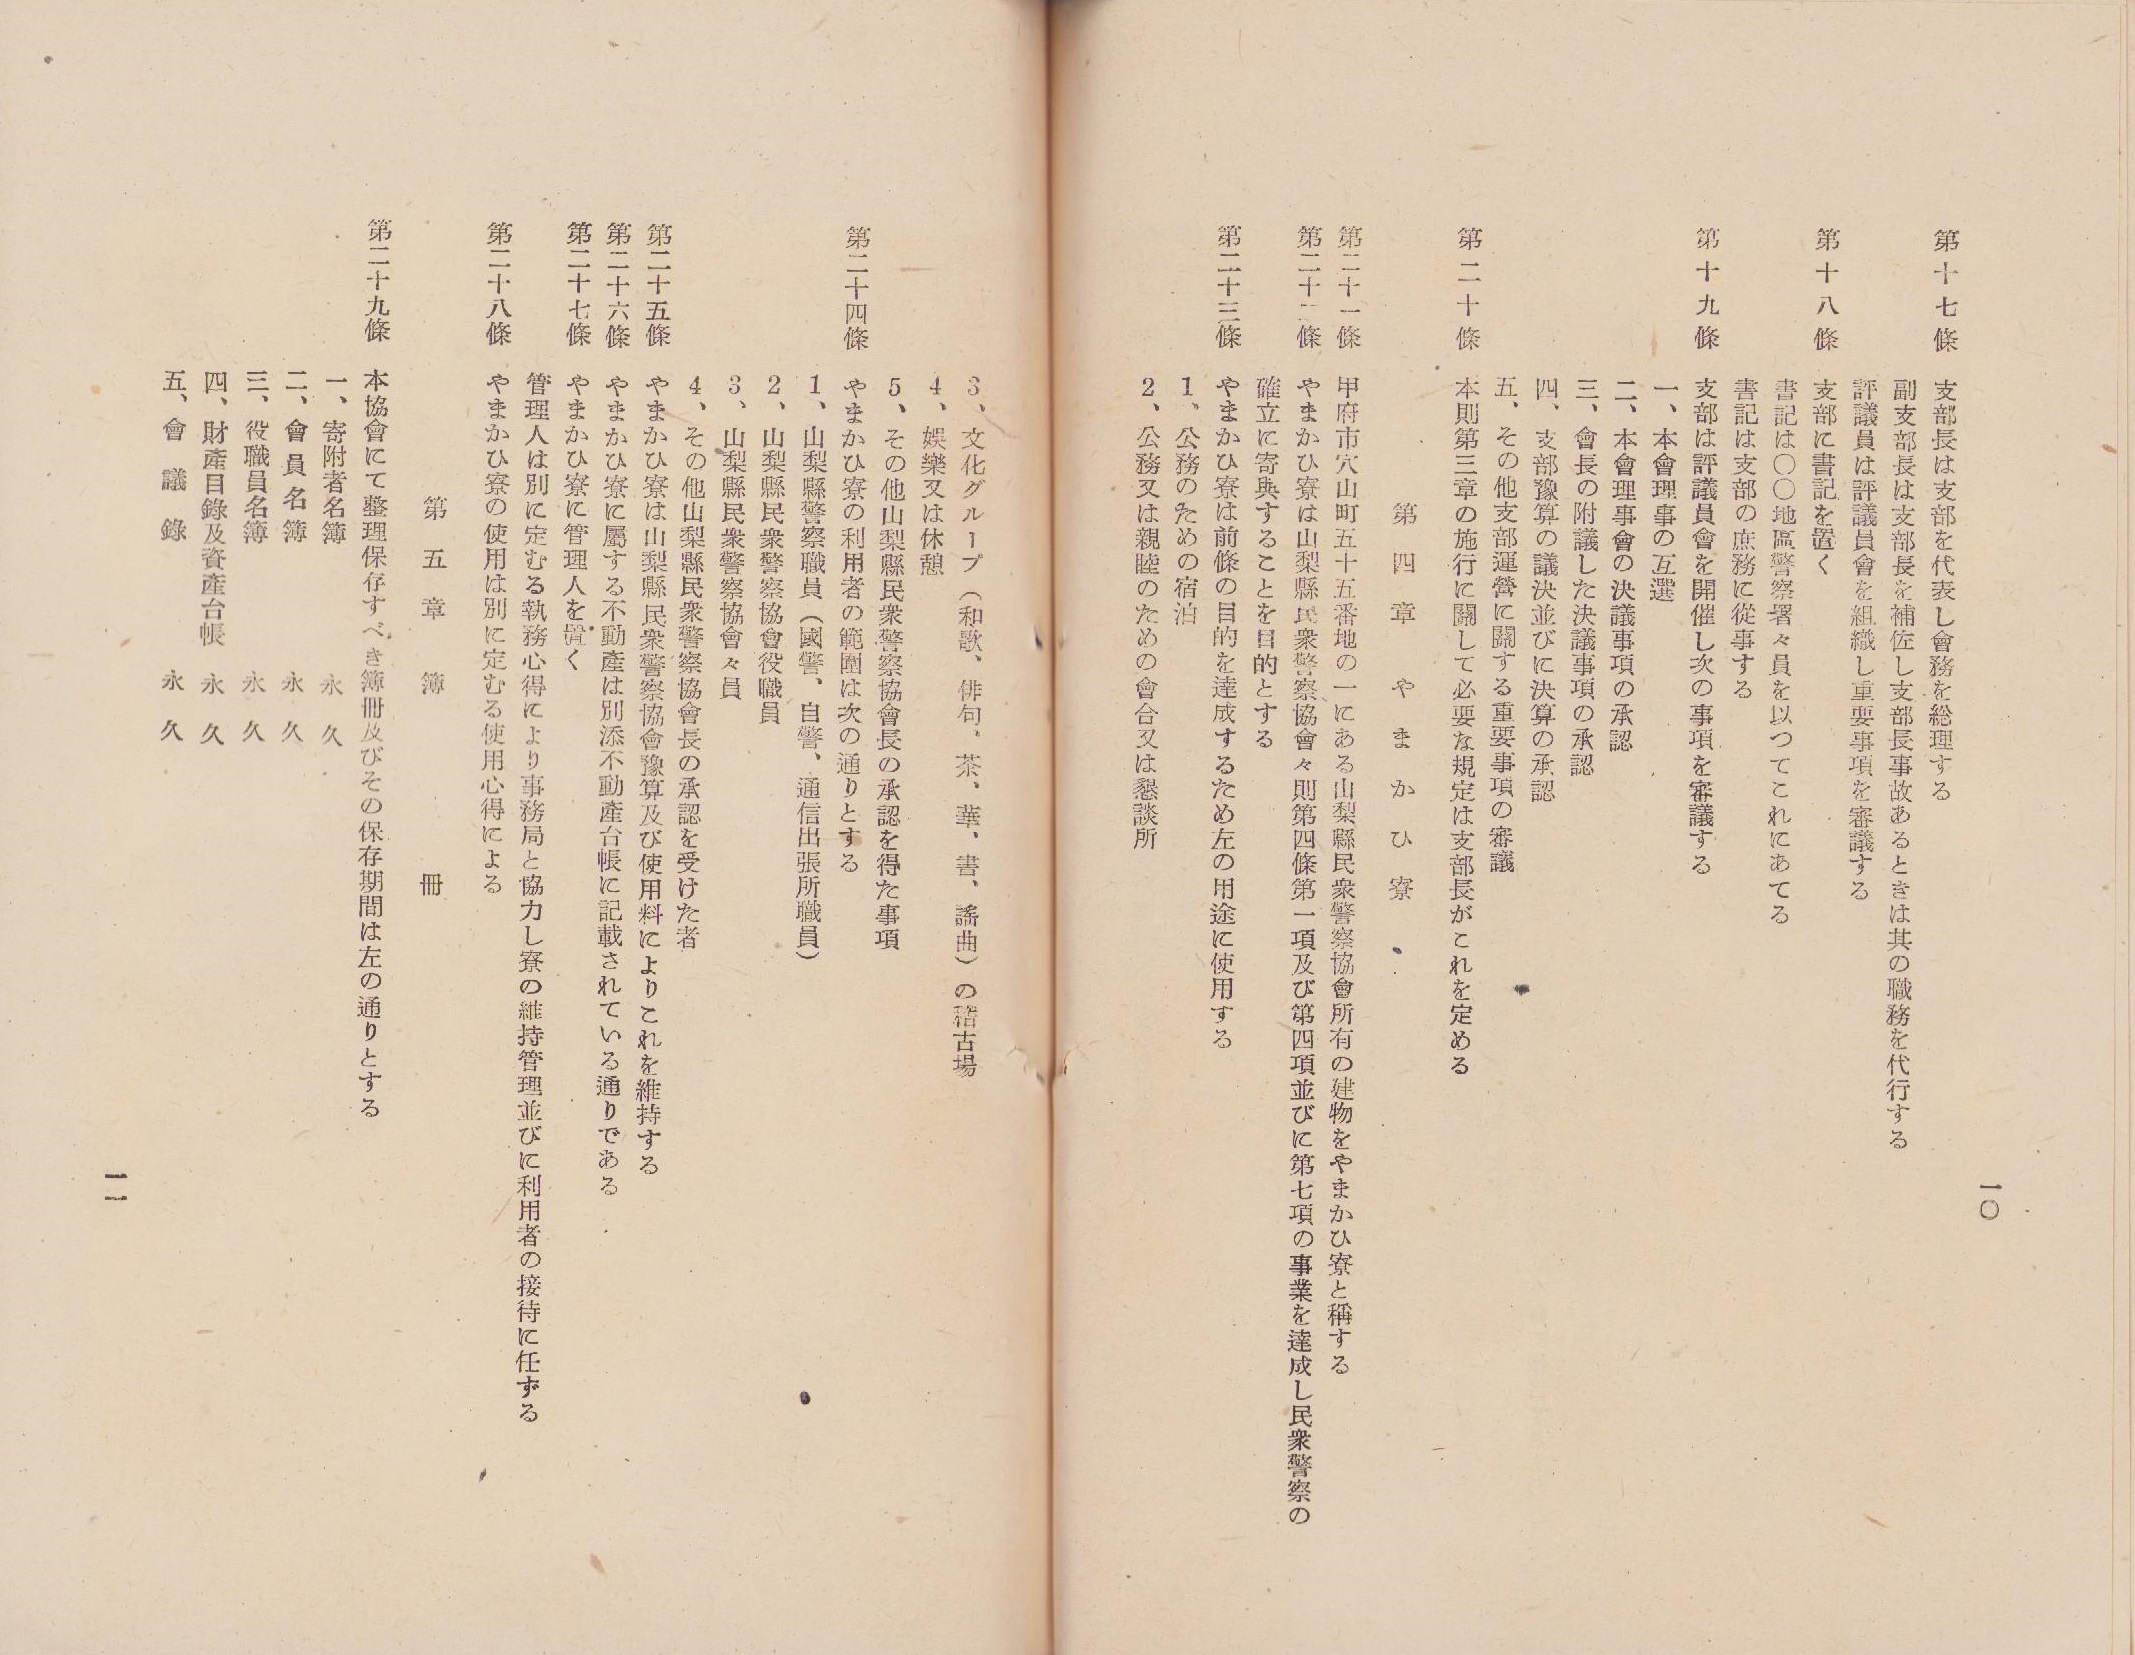 一〇
第十七條　支部長は支部を代表し會務を総理する
副支部長は支部長を補佐し支部長事故あるときは其の職務を代行する
評議員は評議員會を組織し重要事項を審議する
第十八條　支部に書記を置く
書記は〇〇地區警察署々員を以つてこれにあてる
書記は支部の庶務に從事する
第十九條　支部は評議員會を開催し次の事項を審議する
一、本會理事の互選
二、本會理事會の決議事項の承認
三、會長の附議した決議事項の承認
四、支部豫算の議決並びに決算の承認
五、その他支部運營に關する重要事項の審議
第二十條　本則第三章の施行に關して必要な規定は支部長がこれを定める
第四章　やまかひ寮
第二十一條　甲府市穴山町五十五番地の一にある山梨縣民衆警察協會所有の建物をやまかひ寮と稱する
第二十二條　やまかひ寮は山梨縣民衆警察協會々則第四條第一項及び第四項並びに第七項の事業を達成し民衆警察の
確立に寄與することを目的とする
第二十三條　やまかひ寮は前條の目的を達成するため左の用途に使用する
1、公務のための宿泊
2、公務又は親睦のための會合又は懇談所
3、文化グループ（和歌、俳句、茶、華、書、謠曲）の稽古場
4、娯樂又は休憩
5、その他山梨縣民衆警察協會長の承認を得た事項
第二十四條　やまかひ寮の利用者の範圍は次の通りとする
1、山梨縣警察職員（國警、自警、通信出張所職員）
2、山梨縣民衆警察協會役職員
3、山梨縣民衆警察協會々員
4、その他山梨縣民衆警察協會長の承認を受けた者
第二十五條　やまかひ寮は山梨縣民衆警察協會豫算及び使用料によりこれを維持する
第二十六條　やまかひ寮に屬する不動產は別添不動產台帳に記載されている通りである
第二十七條　やまかひ寮に管理人を置く
管理人は別に定むる執務心得により事務局と協力し寮の維持管理並びに利用者の接待に任ずる
第二十八條　やまかひ寮の使用は別に定むる使用心得による
第五章　簿冊
第二十九條　本協會にて整理保存すべき簿冊及びその保存期間は左の通りとする
一、寄附者名簿　永久
二、會員名簿　永久
三、役職員名簿　永久
四、財產目錄及資產台帳　永久
五、會議錄　永久
一一